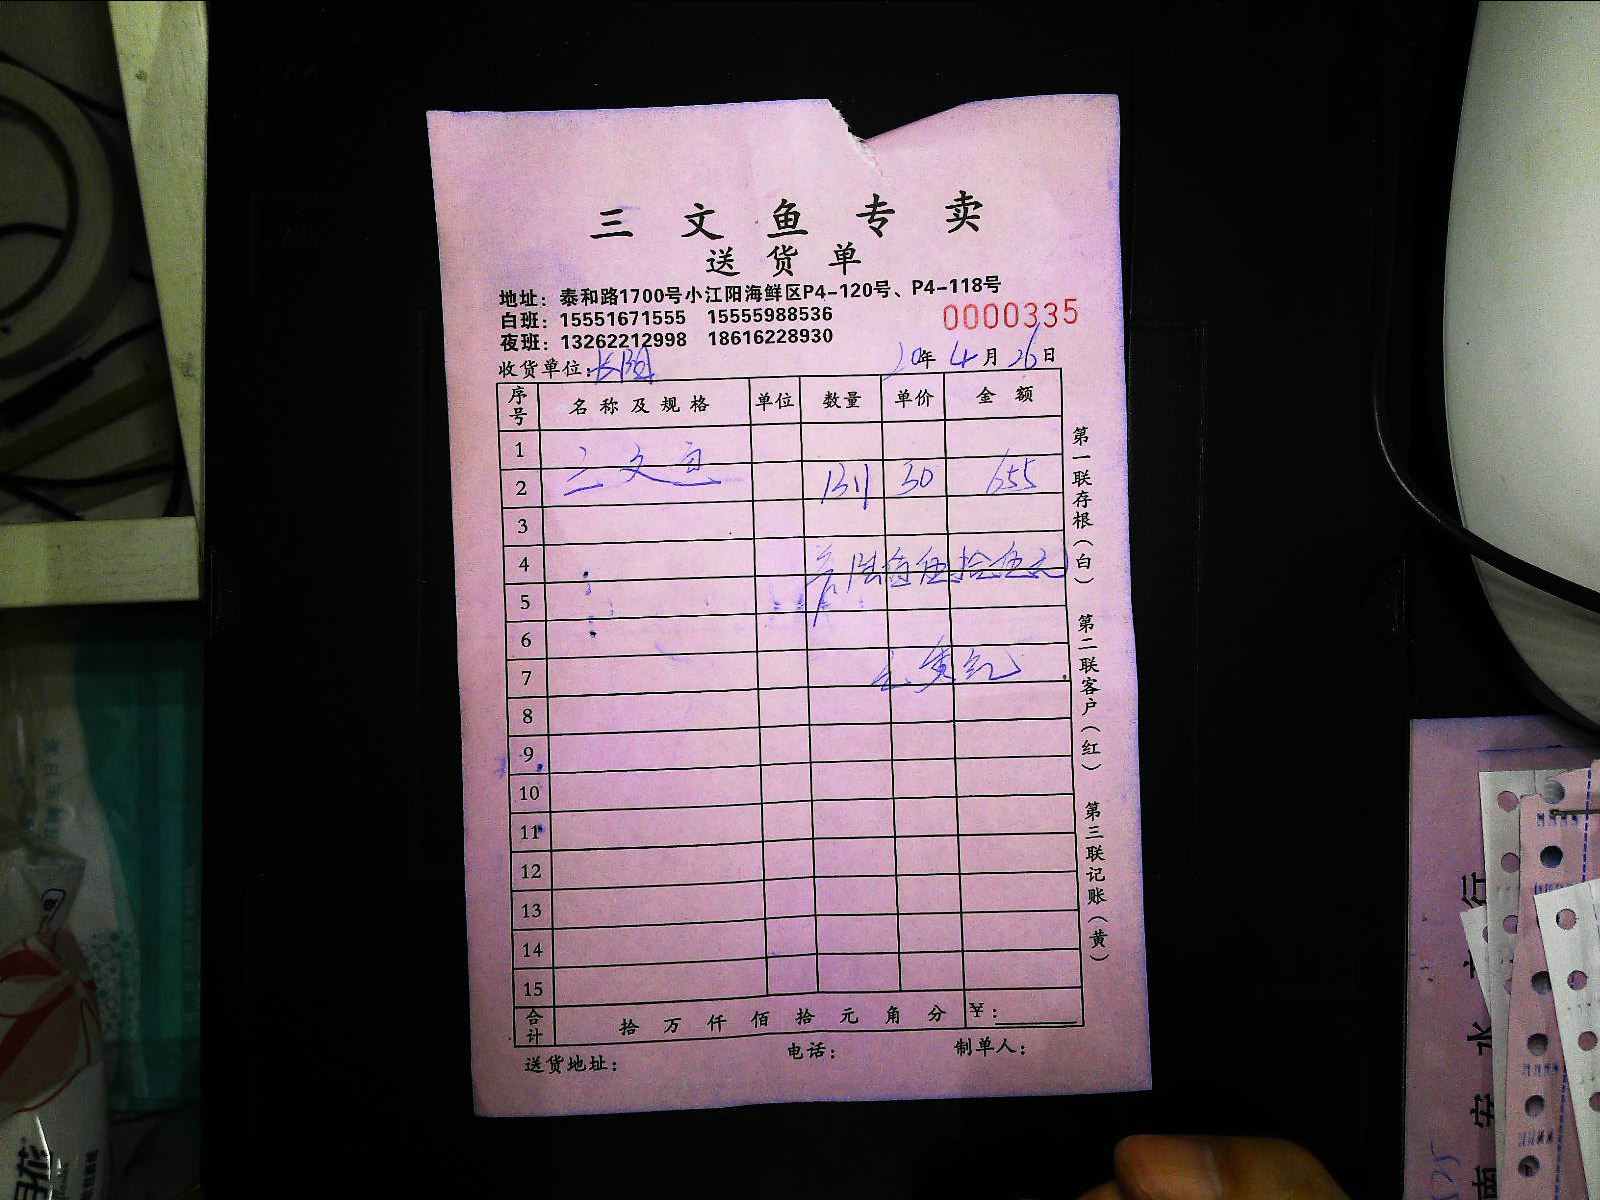 三文鱼专卖
送货单
地址：泰和路1700号小江阳海鲜区P4-120号、P4-118号
白班：15551671555 15555988536
0000335
夜班：13262212998 18616228930
收货单位：长阳 20年4月26日
序号 名称及规格 单位 数量 单价 金额
1
2 三文鱼 131 50 655
3
4 陆佰伍拾伍元
5
6
7
8
9
10
11
12
13
14
15
合计 拾万仟佰拾元角分 ¥：
送货地址： 电话： 制单人：
第一联存根（白） 第二联客户（红） 第三联记账（黄）